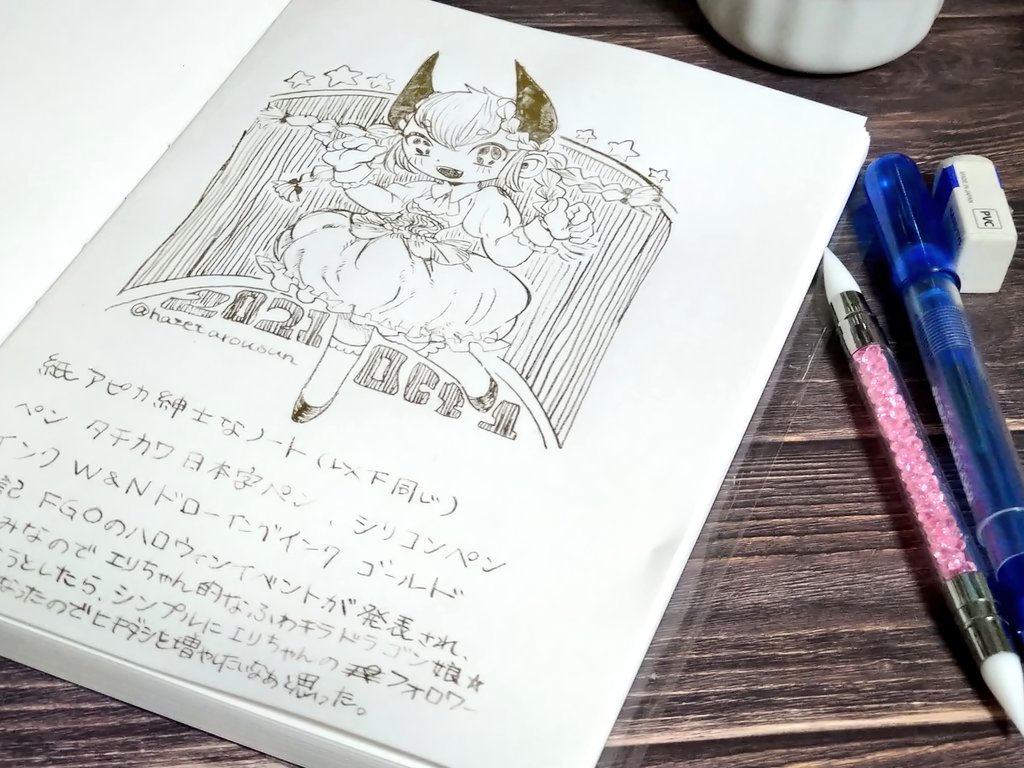 2021 Oct 1
@hazetarousan
紙 アピカ紳士なノート(以下同じ)
ペン タチカワ 日本字ペン、シリコンペン
インク W&Nドローイングインク ゴールド
記 FGOのハロウィンイベントが発表され、
みなのでエリちゃん的なふわキラドラゴン娘☆
うとしたら、シンプルにエリちゃんのフォロワー
なったのでヒダシを増やしたいなあと思った。
PVC